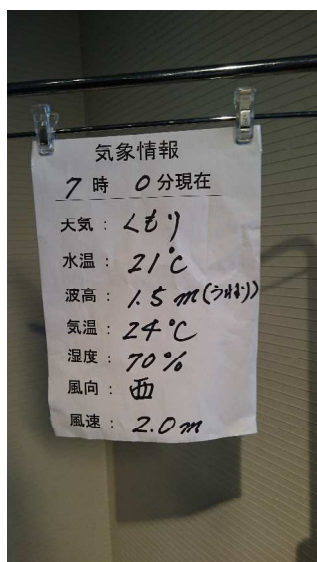 気象情報
7時 0分現在
天気：くもり
水温：21℃
波高：1.5m(うねり)
気温：24℃
湿度：70%
風向：西
風速：2.0m